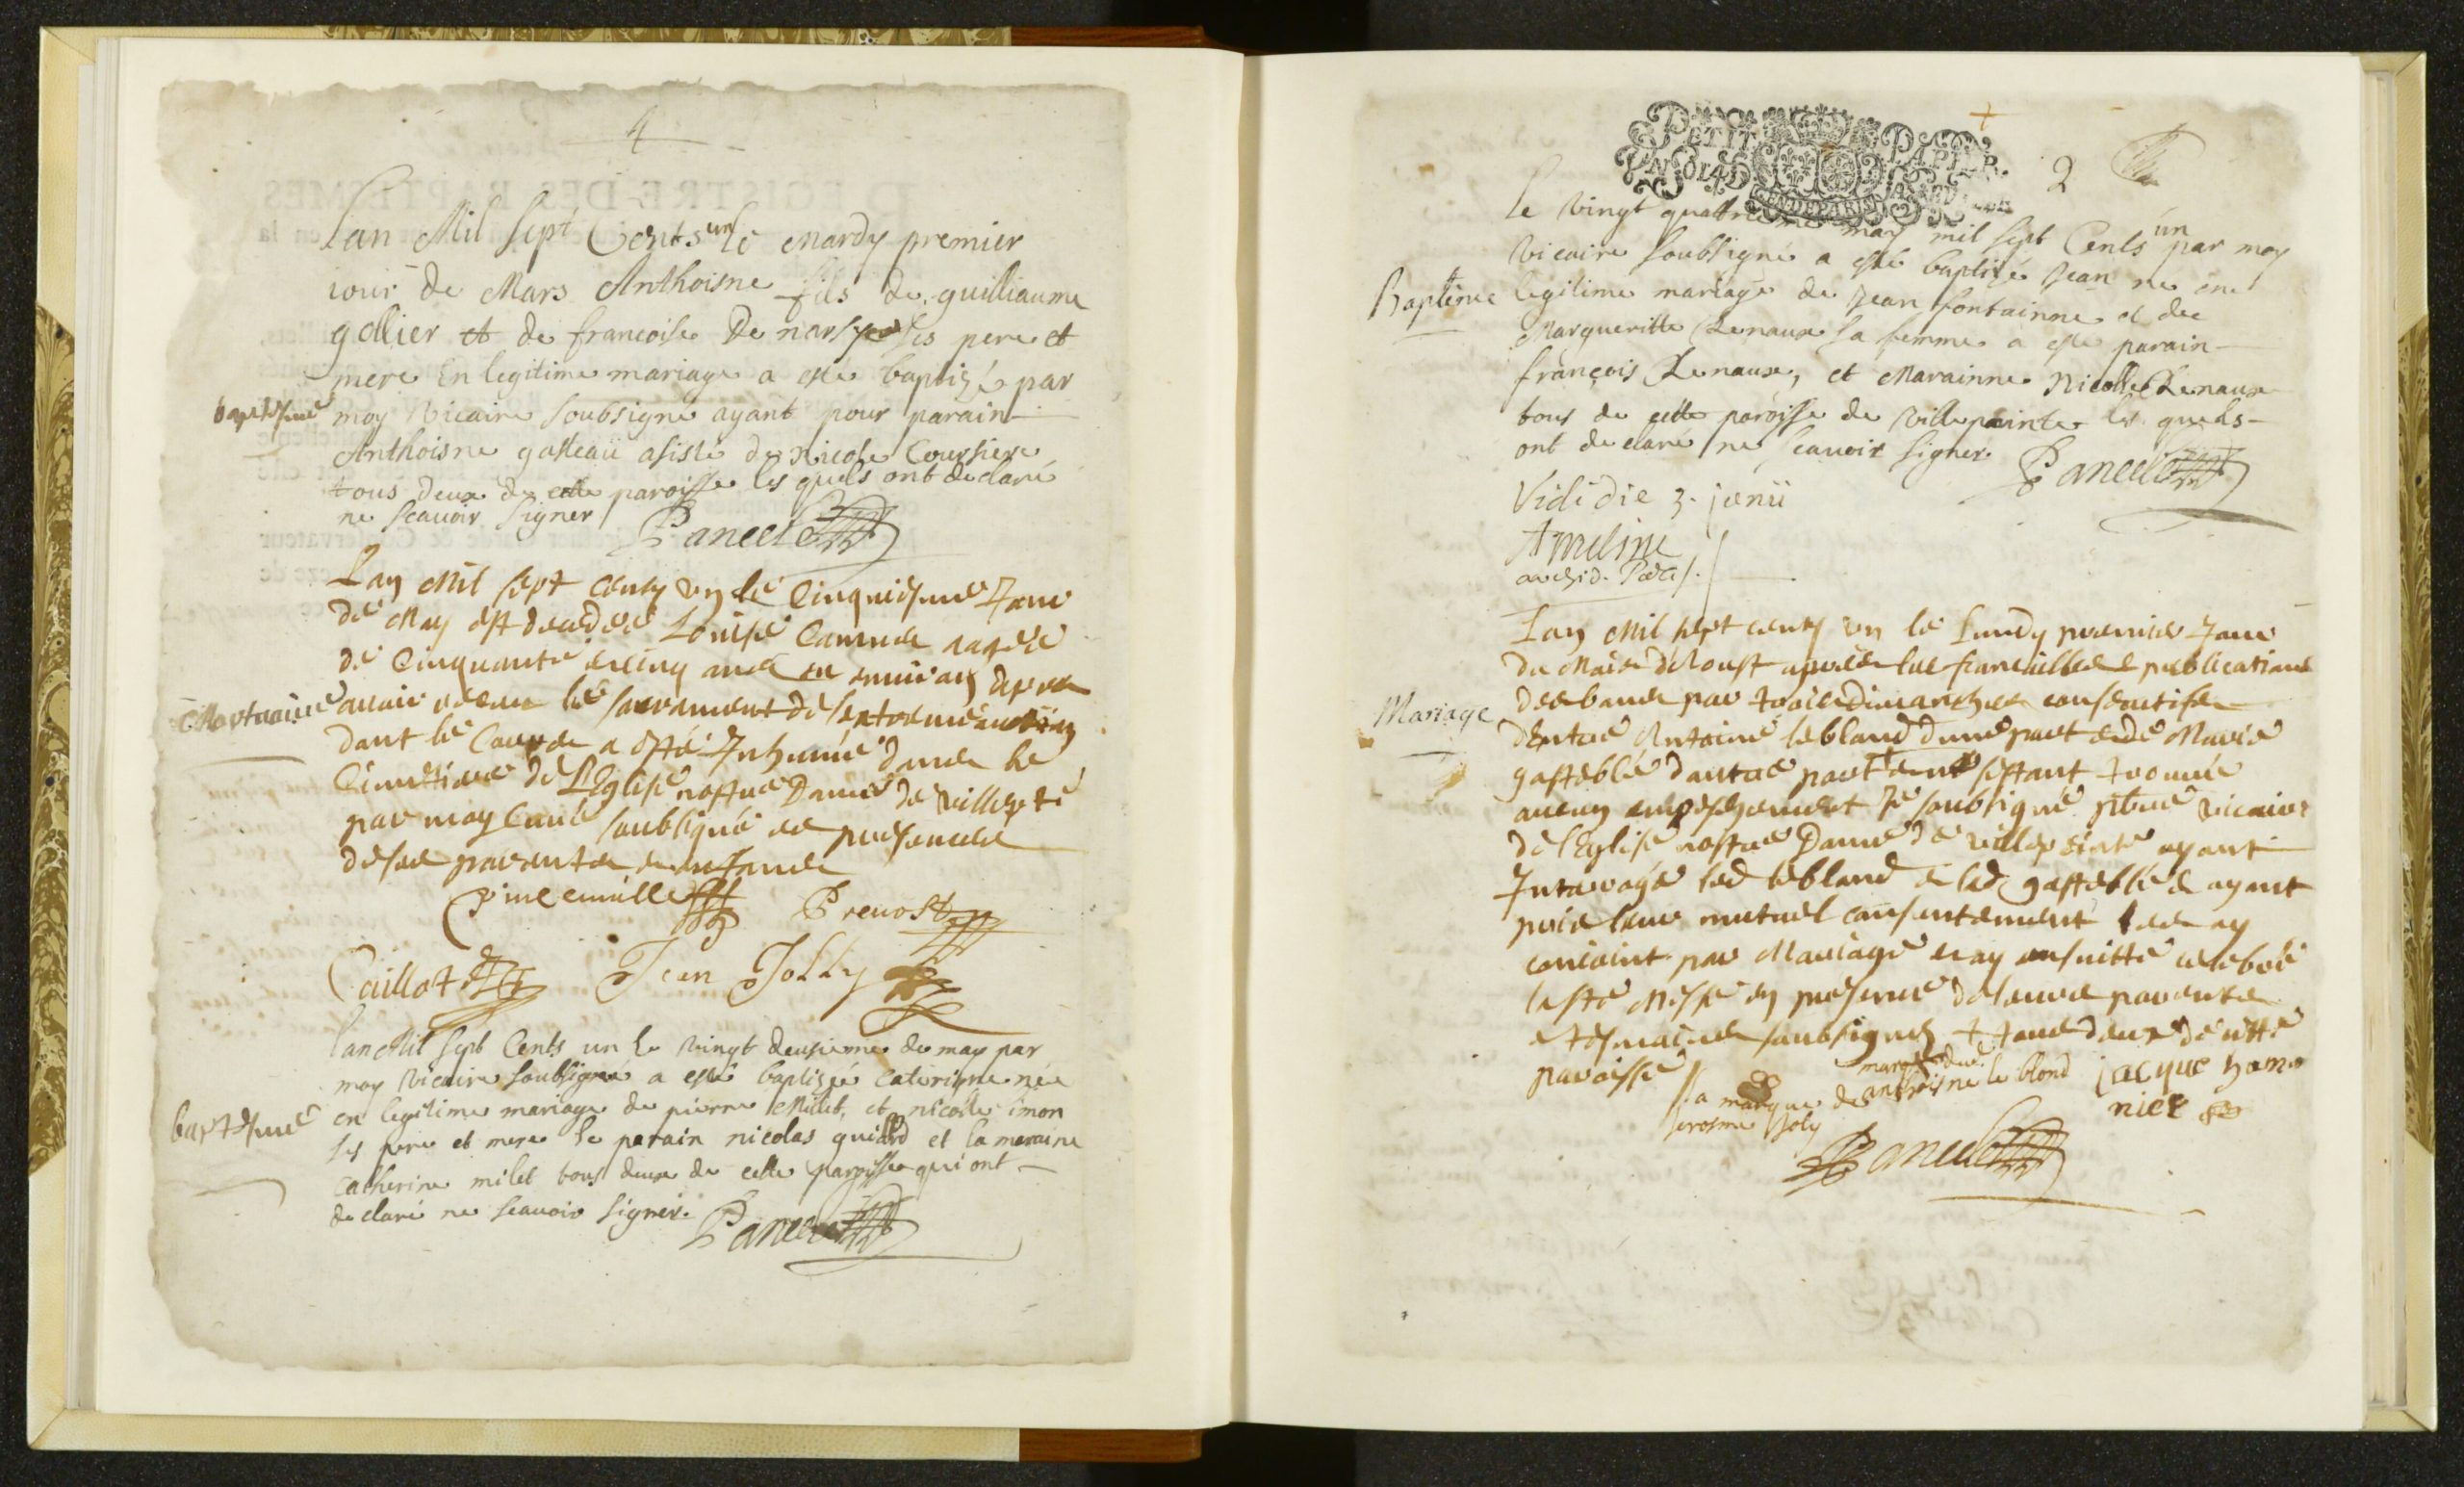 4
Lan Mil Sept Cents un le mardy premier
iour de Mars Anthoisne fils de guilliaume
gollier et de francoise De nars ses pere et
mere En legitime mariage a este baptizé par
baptesme
moy Vicaire soubsigné ayant pour parain
Anthoisne gasteau asisté de Nicole Coursiere
tous deux de cette paroisse les quels ont declaré
ne scauoir signer Pancele
Lan Mil sept cents un le cinquiesme Jour
de May est decedée Louise aagée
de Cinquante et cinq ans ou enuiron apres
Mortuaire
auoir receu le sacrament de lextremeonction
dont le Corps a esté Inhumé dans le
Cimetiere de LEglise nostre Dame de Villepte
par moy Curé soubsigné en presence
de ses parents et amis
Pinceuuille Preuost
Caillot Jean Jolly
Lan Mil Sept Cents un le vingt deusieme de may par
moy Vicaire soubsigné a esté baptizée Caterinne née
baptesme
en legitime mariage de pierre Millet, et nicolle simon
ses pere et mere le parain nicolas guillard et la maraine
catherine milet tous deux de cette paroisse qui ont
declaré ne scauoir signer. Pancele
PETIT PAPIER
VN SOL 4 D LA FED
GEN DE PARIS
2
le vingt quattrieme may mil sept Cents un par moy
Vicaire soubsigné a esté baptizé Jean ne en
Baptême
legitime mariage de Jean fontainne et de
Margueritte Renaux sa femme a esté parain
françois Renaux, et Marainne Nicolle Renaux
tous de cette paroisse de Villepainte les quels
ont declaré ne scauoir signer. Pancele
Vidi die 3. junii
Ameline
archid. Paris.
Lan Mil sept cents un le Lundy premier Jour
du Mois d'Aoust apres les fiancailles et publications
des bancs par trois dimanches consecutifs
Mariage
d'Entre Antoine lebland dune part et de Marie
gasteblé dautre part et ne sestant trouué
aucun empeschement Je soubsigné ptre vicaire
de l'Eglise nostre Dame de villepeinte ayant
Interrogé led lebland et lad gasteblée ayant
pris leur mutuel consentement les ay
conioint par Mariage et ay ensuitte celebré
la ste Messe en presence de leurs parents
et tesmoins soubsignez tous deux de cette
paroisse
la marque de anthoisne le blond jacque hano
marque de
jerosme joly nier
Pancele